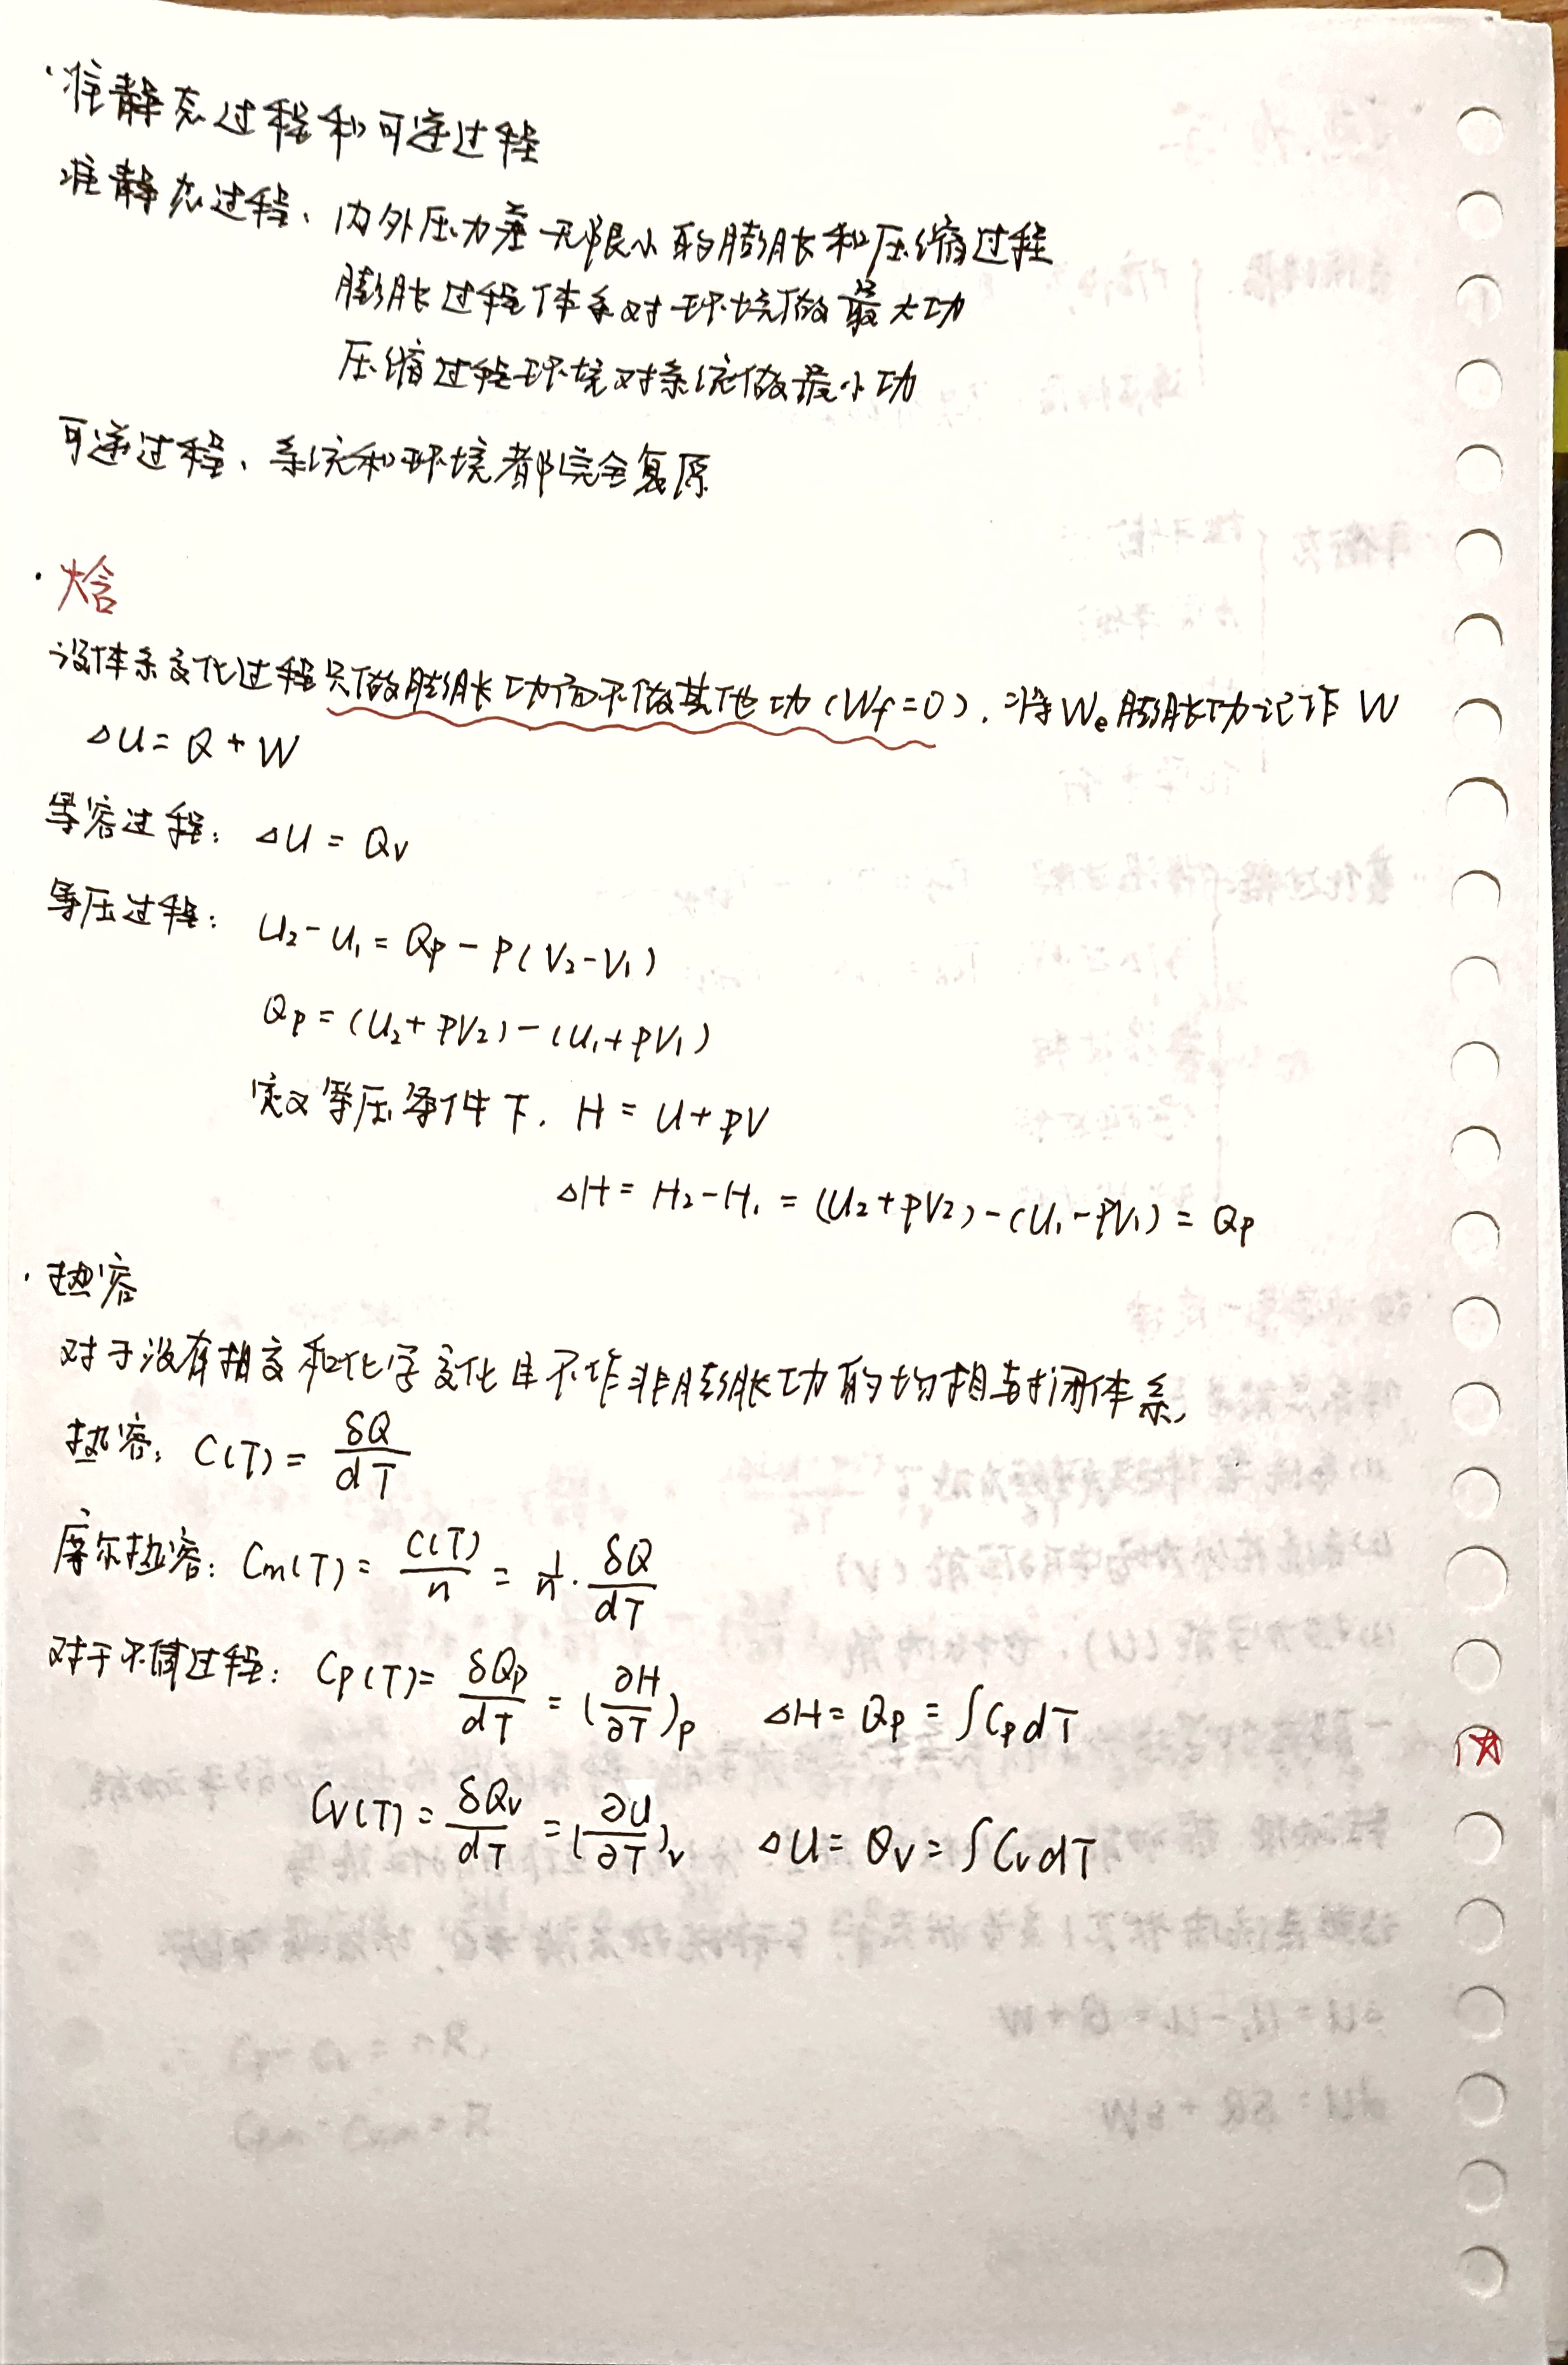 ·准静态过程和可逆过程
准静态过程、内外压力差无限小的膨胀和压缩过程
膨胀过程体系对环境做最大功
压缩过程环境对系统做最小功
可逆过程、系统和环境都完全复原
·焓
设体系变化过程只做膨胀功而不做其他功(Wf=0),将We膨胀功记作W
ΔU=Q+W
等容过程:ΔU=Qv
等压过程:U₂-U₁=Qp-p(V₂-V₁)
Qp=(U₂+pV₂)-(U₁+pV₁)
定义等压条件下. H=U+pV
ΔH=H₂-H₁=(U₂+pV₂)-(U₁-pV₁)=Qp
·热容
对于没有相变和化学变化且不作非膨胀功的均相封闭体系,
热容:C(T)=δQ/dT
摩尔热容:Cm(T)=C(T)/n=1/n·δQ/dT
对于不同过程:Cp(T)=δQp/dT=(∂H/∂T)p ΔH=Qp=∫CpdT
Cv(T)=δQv/dT=(∂U/∂T)v ΔU=Qv=∫CvdT